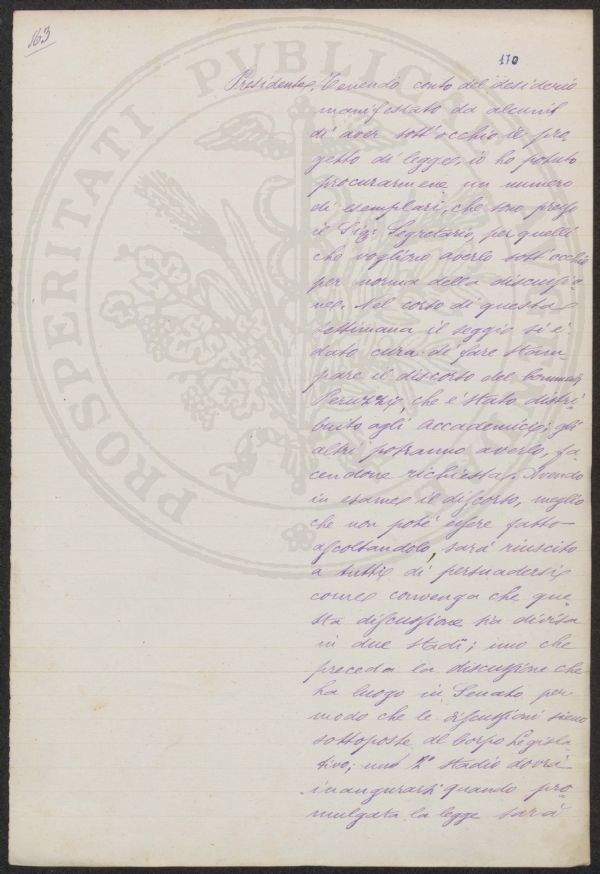 163
170
Presidente. Tenendo conto del desiderio
manifestato da alcuni
di aver sott'occhio il pro=
getto di legge, io ho potuto
procurarmene un numero
di esemplari, che sono presso
il Sig: Segretario, per quelli
che vogliono averlo sott'occhio
per norma della discussio
ne. Nel corso di questa
settimana il seggio si è
dato cura di fare stam=
pare il discorso del Comm.
Peruzzi, che è stato distri=
buito agli Accademici; gli
altri potranno averlo, fa=
cendone richiesta. Avendo
in esame il discorso, meglio
che non poté essere fatto
ascoltandolo, sarà riuscito
a tutti di persuadersi
come convenga che que=
sta discussione sia divisa
in due stadî; uno che
preceda la discussione che
ha luogo in Senato per
modo che le discussioni sieno
sottoposte al Corpo Legisla=
tivo; un 2° stadio dovrà
inaugurarsi quando pro=
mulgata la legge sarà
PROSPERITATI PUBLICAE